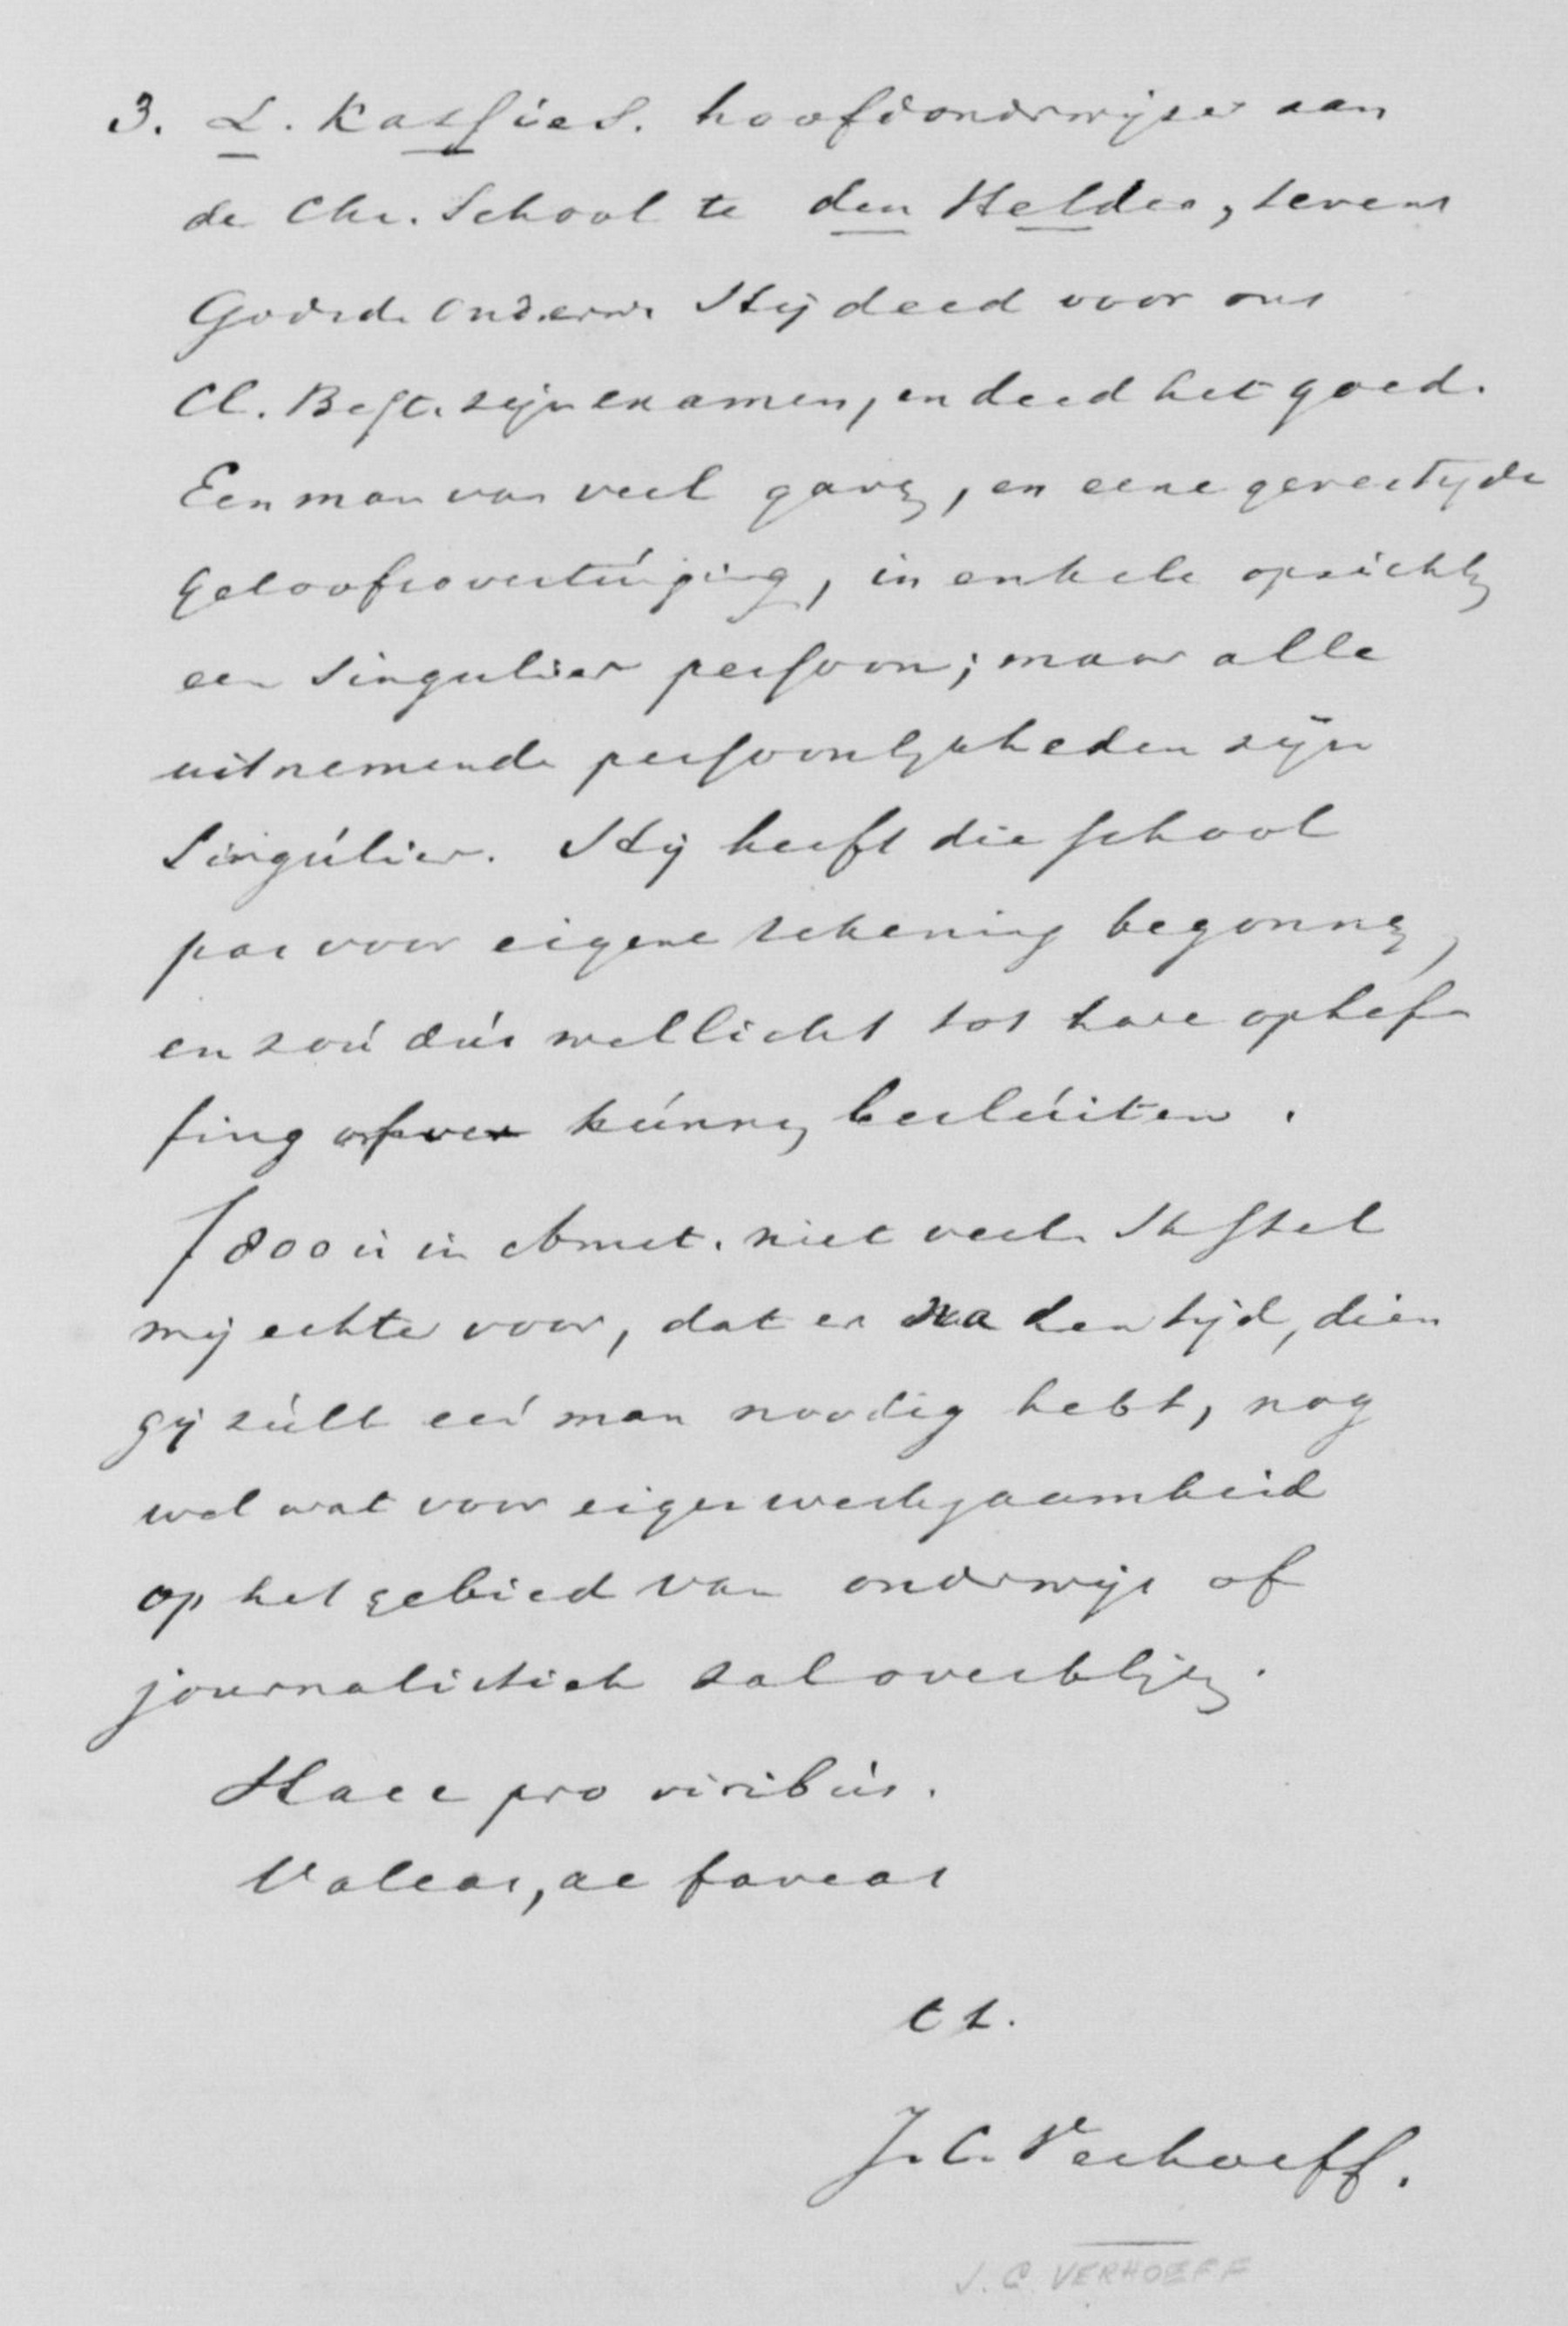 3. L. Kassies. hoofdonderwijzer aan
de Chr. School te den Helder, tevens
Godsd. Onderw. Hij deed voor ons
Cl. Best. zijn examen, en deed het goed.
Een man van veel gaven, en eene gevestigde
geloofsovertuiging, in enkele opzichten
een singulier persoon; maar alle
uitnemende persoonlijkheden zijn
singulier. Hij heeft die school
pas voor eigene rekening begonnen,
en zou dus wellicht tot hare ophef-
fing kunnen besluiten.
ƒ800 is in Amst. niet veel. Ik stel
mij echter voor, dat er na den tijd, dien
gij zult een man noodig hebt, nog
wel wat voor eigen werkzaamheid
op het gebied van onderwijs of
journalistiek zal overblijven.
Haec pro viribus.
Valeas, ac faveas
tt.
J. C. Verhoeff.
J. C. VERHOEFF